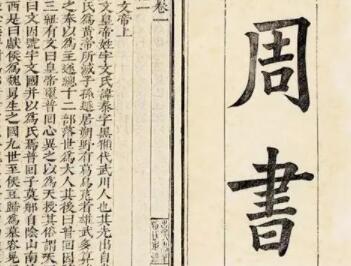 周書
卷一
一
文帝上
文皇帝姓宇文氏諱泰字黑獺代武川人也其先出自
氏為黃帝所滅子孫遯居朔野有葛烏菟者雄武多算
之奉以為主遂總十二部落世為大人其後曰普回因
三紐有文曰皇帝璽普回心異之以為天授其俗謂天
曰文因號宇文國并以為氏焉普回子莫那自陰山南
西是曰獻侯為魏舅生之國九世至侯豆歸為慕容晃